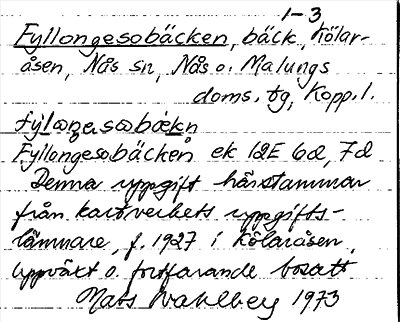 1-3
Fyllongesobäcken, bäck, Kölar-
åsen, Nås sn, Nås o. Malungs
doms. tg, Kopp. l.
Fyllongesobäcken ek 12E 6d, 7d
Denna uppgift härstammar
från kartverkets uppgifts-
lämnare, f. 1927 i Kölaråsen,
uppväxt o. fortfarande bosatt
Mats Wahlberg 1973